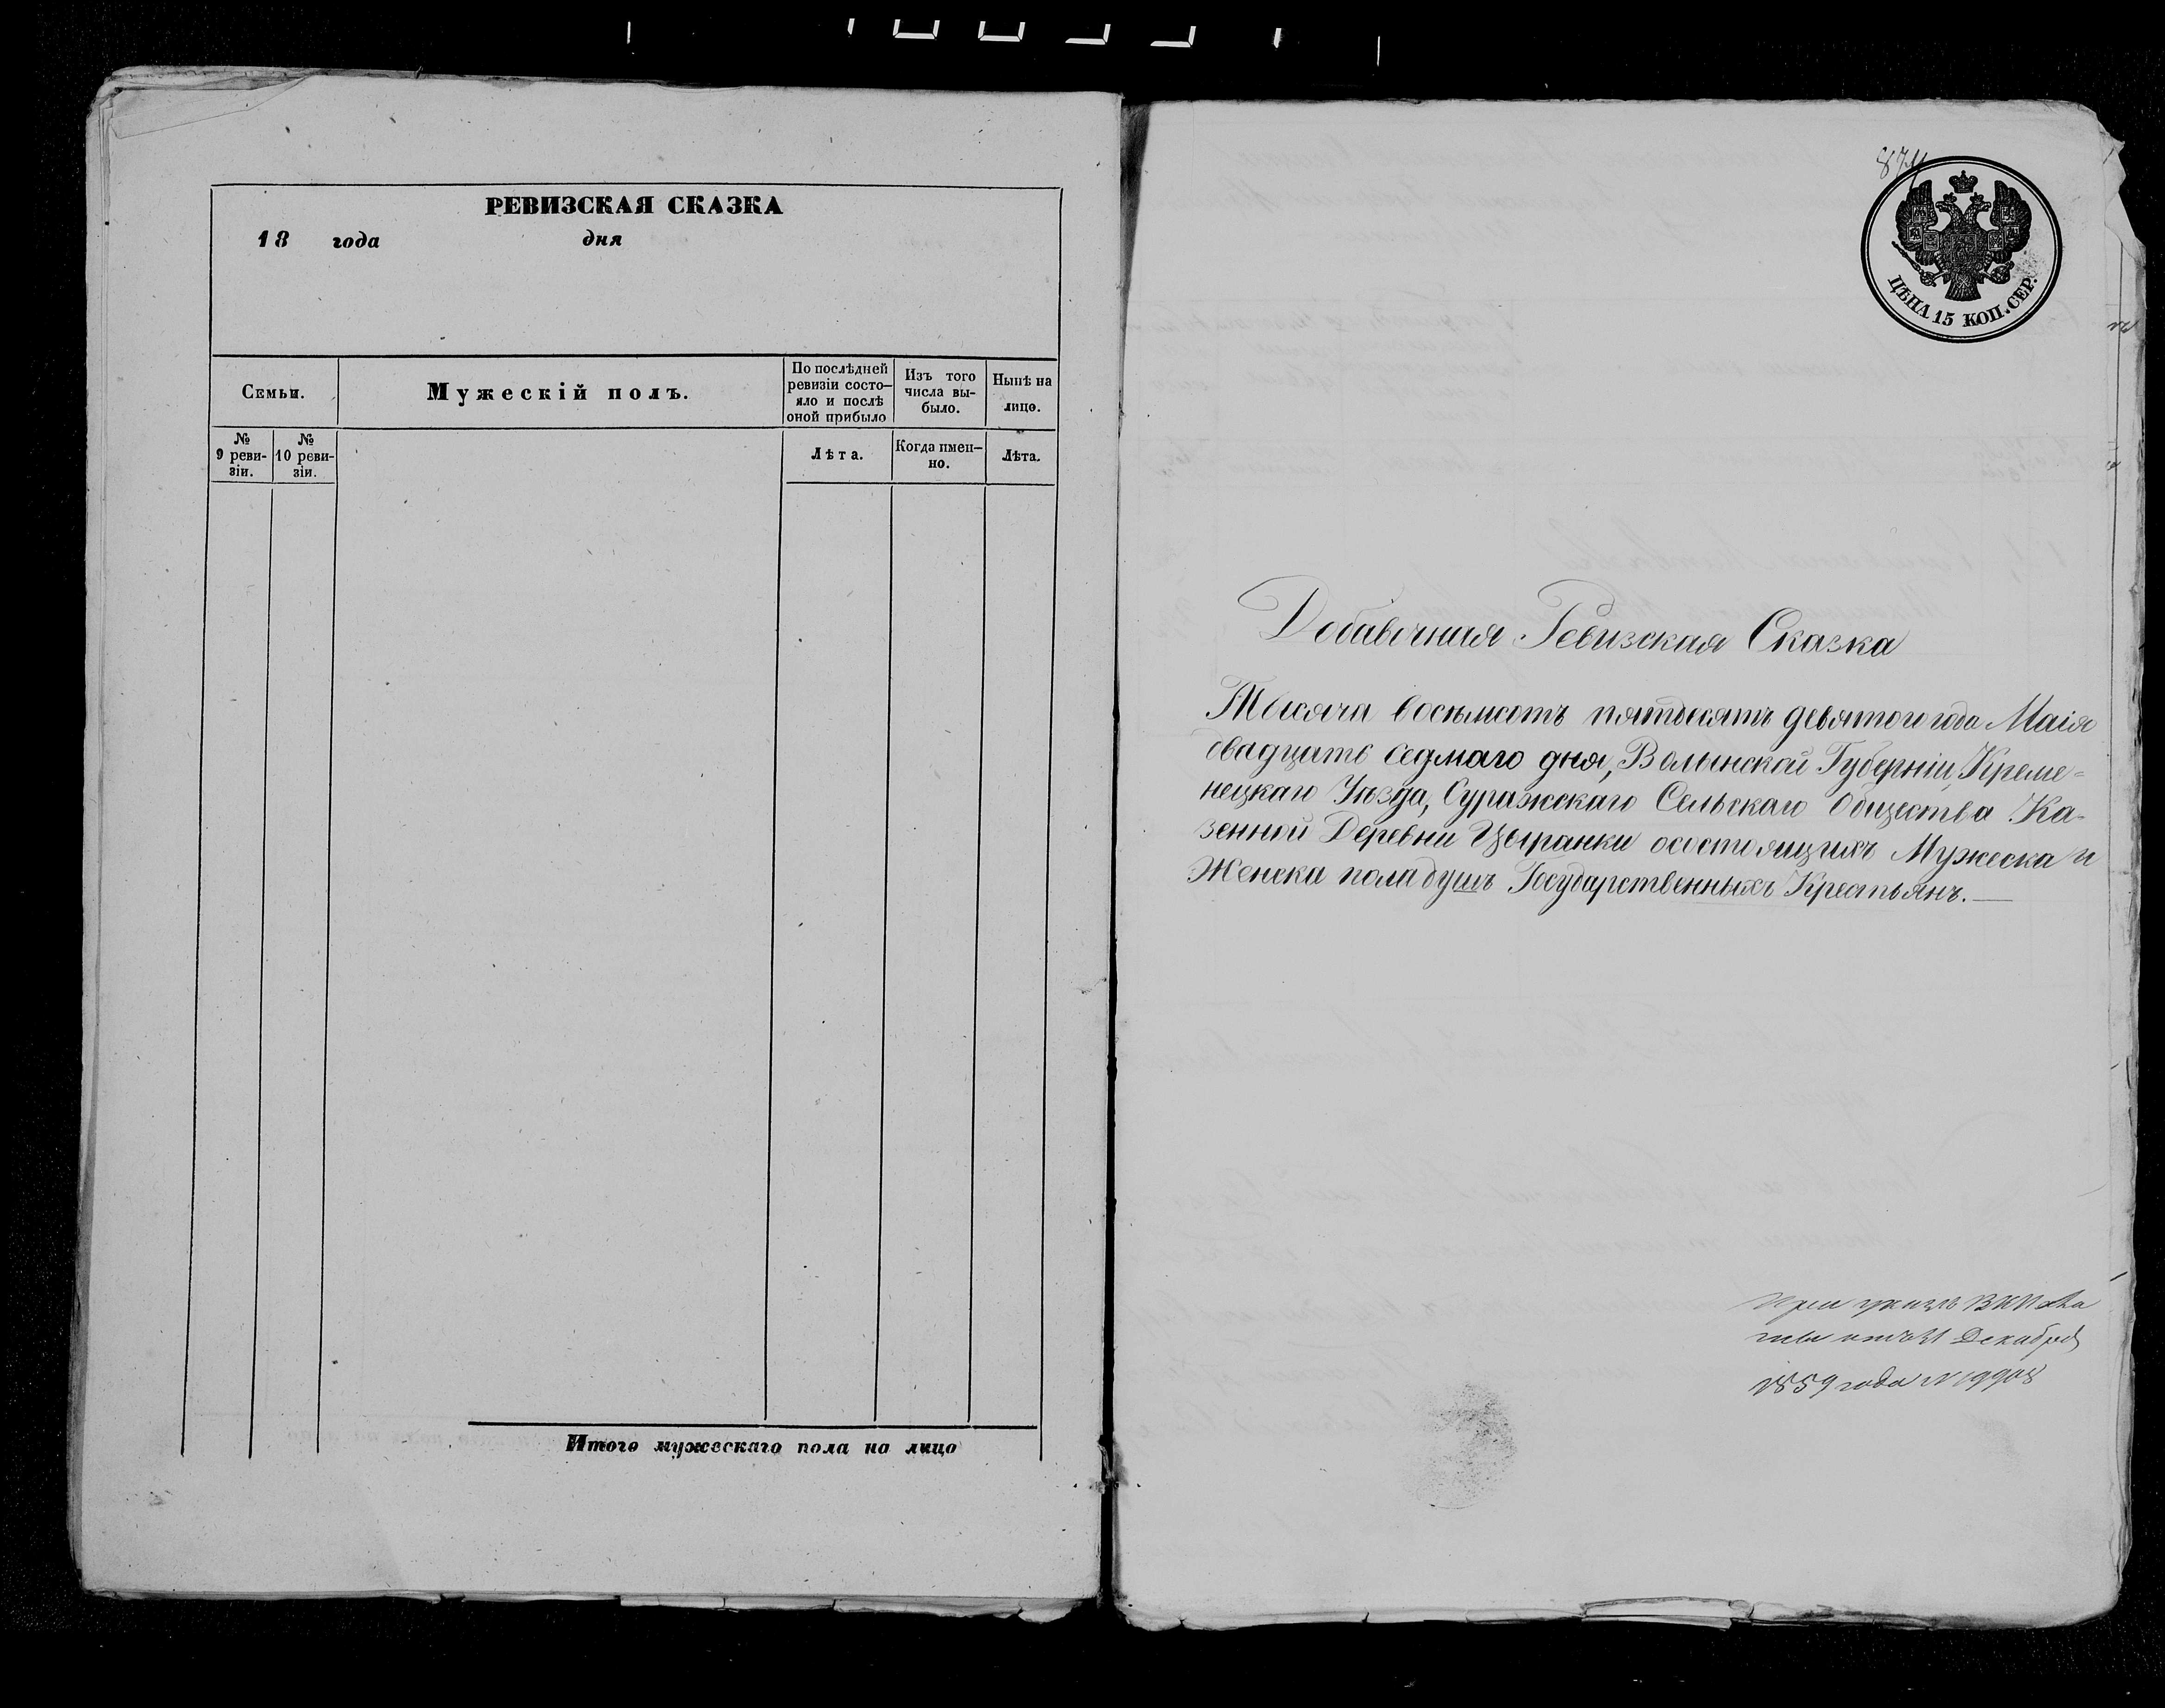 РЕВИЗСКАЯ СКАЗКА
18 года дня
Семьи.
Мужескій полъ.
По послѣдней
ревизіи состо-
яло и послѣ
оной прибыло
Изъ того
числа вы-
было.
Нынѣ на
лицо.
№
9 реви-
зіи.
№
10 реви-
зіи.
Лѣта.
Когда имен-
но.
Лѣта.
Итого мужескаго пола на лицо
874
ЦѢНА 15 КОП. СЕР.
Добавочная Ревизская Сказка
Тысяча восемьсотъ пятдесятъ девятого года Маія
двадцать седмаго дня, Волынской Губерніи, Креме=
нецкаго Уѣзда, Суражскаго Сельскаго Общества Ка-
зенной Деревни Цыранки осостоящихъ Мужеска и
Женска пола душъ Государственныхъ Крестьянъ.
При указѣ ВКП
Декабря
1859 года N 19908